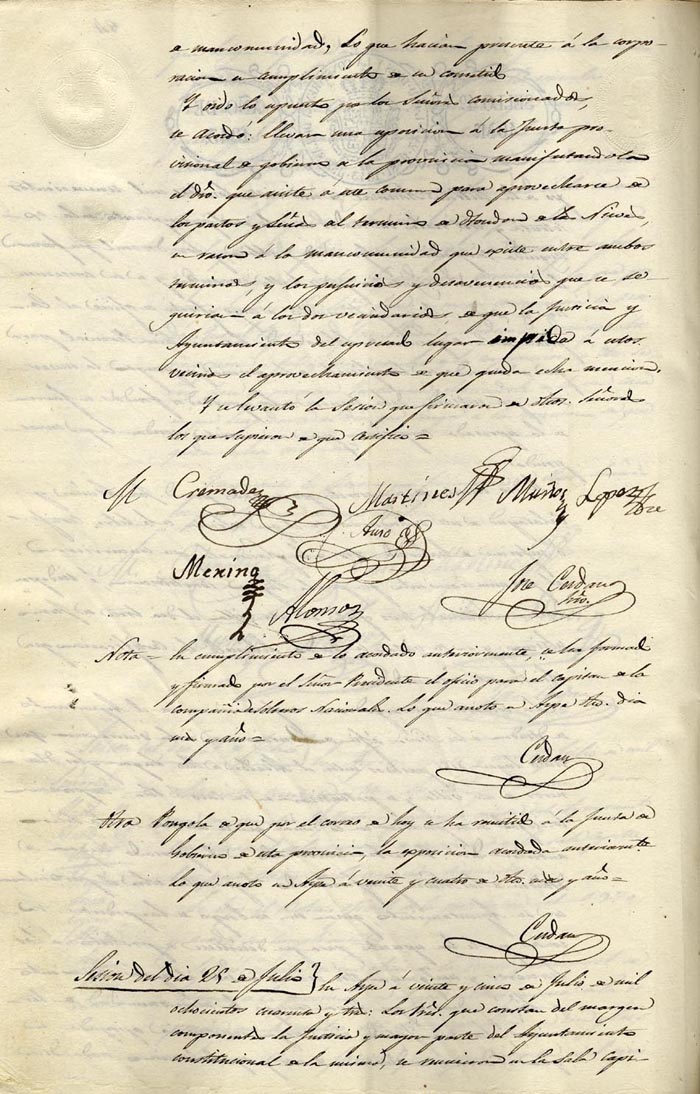 de mancomunidad, Lo que hacian presente á la corpo-
racion en cumplimiento de su cometido
Y oido lo espuesto por los Señores comisionados,
se acordó: llevar una esposicion á la Junta pro-
visional de gobierno de la provincia manifestandola
el dro. que asiste á este comun para aprovecharse de
los pastos y Leñas del termino de Hondon de las Nieves,
en razon á la mancomunidad que existe entre ambos
terminos, y los perjuicios y desavenencias que se se-
guirian á los dos vecindarios de que la Justicia y
Ayuntamiento del espresado lugar impida á estos
vecinos el aprovechamiento de que queda echa mencion.
Y se levantó la Sesion que firmaron de dhos. Señores
los que supieron de que certifico=
M Cremades Martines Muñoz Lopez
Auso
Merino Jose Cerdan
Srio.
Alonso
Nota= En cumplimiento de lo acordado anteriormente, se ha formado
y firmado por el Señor Presidente el oficio para el capitan de la
compañia de Nacionales. Lo que anoto en Aspe dho. dia
mes y año=
Cerdan
Otra Pongola de que por el correo de hoy se ha remitido á la Junta de
Gobierno de esta provincia, la esposicion acordada anteriormte.
Lo que anoto en Aspe á veinte y cuatro de dho. mes y año=
Cerdan
Sesion del dia 25 de Julio} En Aspe á veinte y cinco de Julio de mil
ochocientos cuarenta y tres: Los Sres. que constan del margen
componentes la Justicia y mayor parte del Ayuntamiento
constitucional de la misma, se reunieron en la Sala Capi-